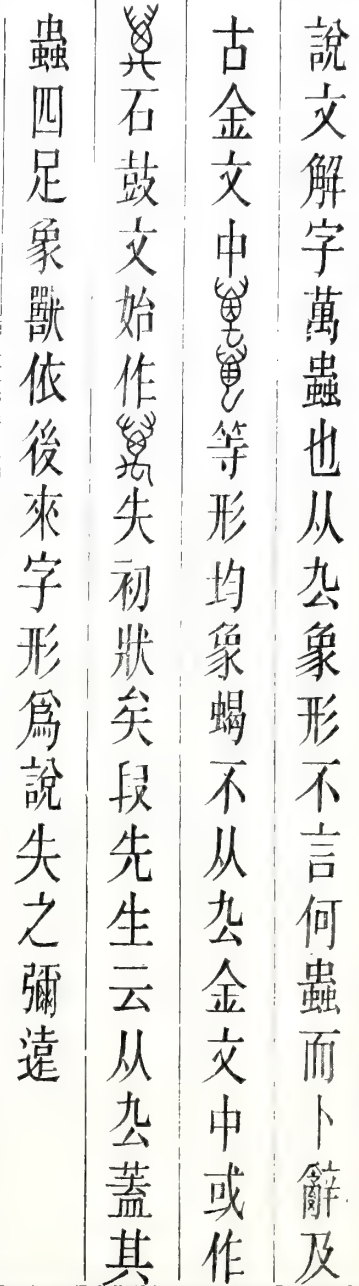 說文解字萬蟲也从厹象形不言何蟲而卜辭及
古金文中等形均象蝎不从厹金文中或作
石鼓文始作失初狀矣段先生云从厹蓋其
蟲四足象獸依後來字形爲說失之彌遠